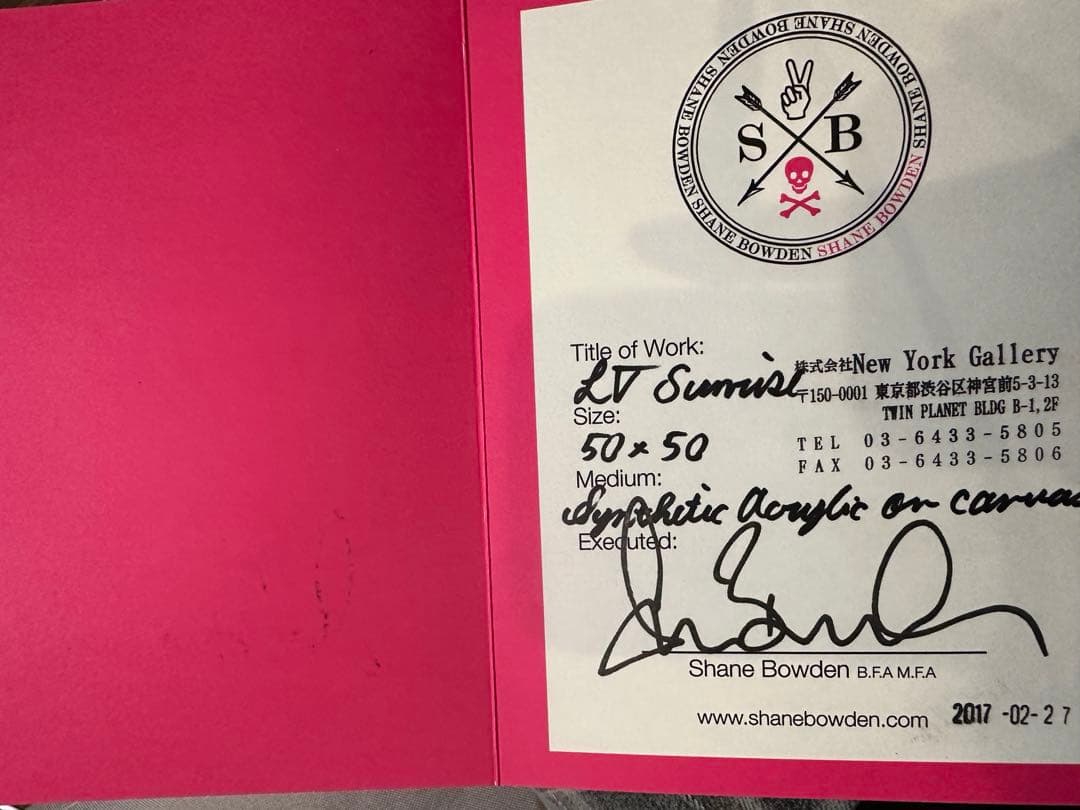 SHANE BOWDEN SHANE BOWDEN SHANE BOWDEN SHANE BOWDEN SHANE BOWDEN
S B
Title of Work:
LV Sunrise
株式会社New York Gallery
〒150-0001 東京都渋谷区神宮前5-3-13
TWIN PLANET BLDG B-1, 2F
TEL 03-6433-5805
FAX 03-6433-5806
Size:
50 x 50
Medium:
Synthetic Acrylic on canvas
Executed:
Shane Bowden B.F.A M.F.A
www.shanebowden.com
2017-02-27